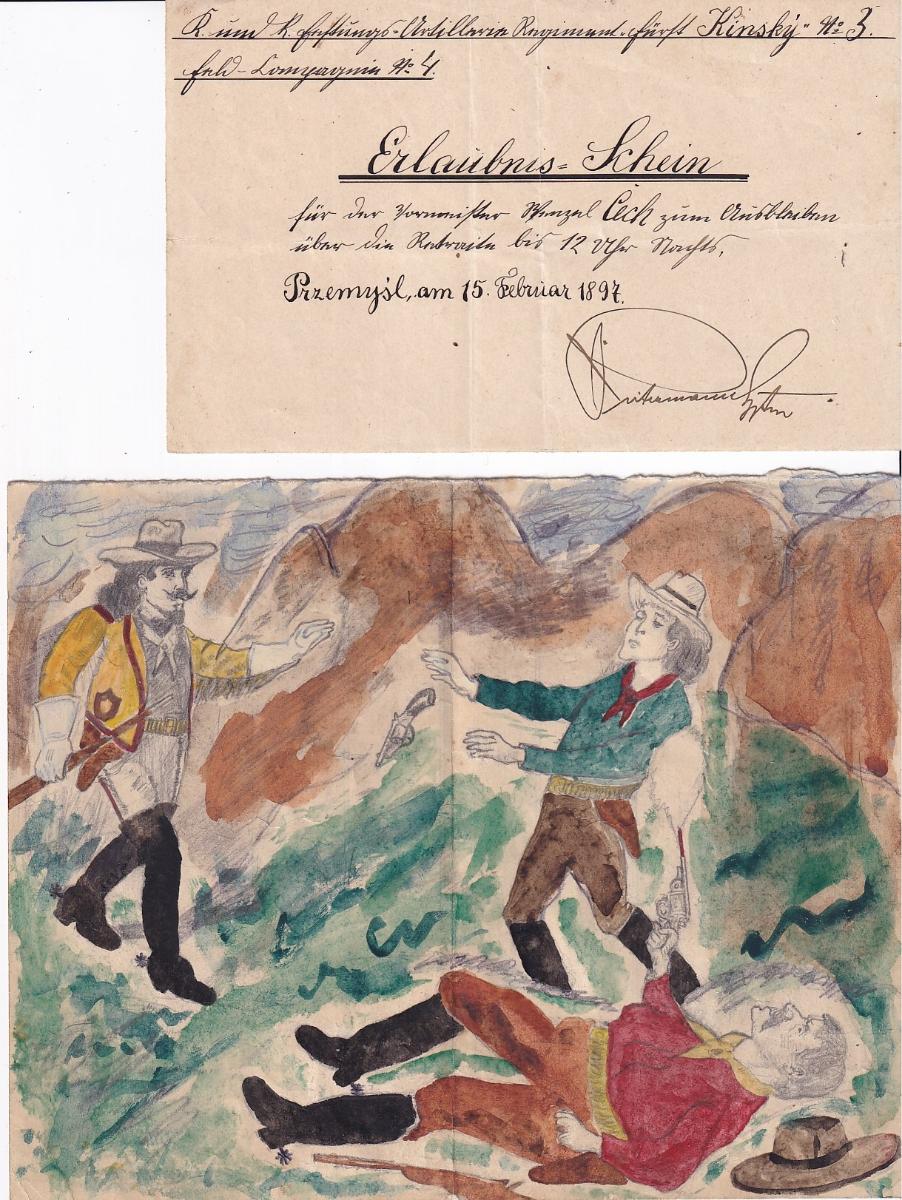 K. und K. Festungs-Artillerie Regiment "Fürst Kinský" No 3.
Feld-Compagnie No 4.
Erlaubnis-Schein
für der Vormeister Wenzel Čech zum Ausbleiben
über die Retraite bis 12 Uhr Nachts.
Przemyśl, am 15. Februar 1897.
Hptm